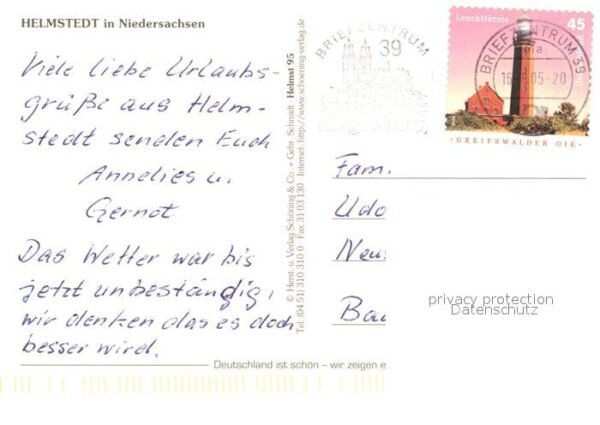 HELMSTEDT in Niedersachsen
Viele liebe Urlaubs-
grüße aus Helm-
stedt senden Euch
Annelies u.
Gernot
Das Wetter war bis
jetzt unbeständig,
wir denken das es doch
besser wird.
© Herst. u. Verlag Schöning & Co. + Gebr. Schmidt Helmst 95
Tel. (0451) 310 310 0 · Fax 31 03 130 · Internet: http://www.schoening-verlag.de
BRIEFZENTRUM
39
Leuchttürme 45
BRIEFZENTRUM 39
05-20
·GREIFSWALDER OIE·
Fam.
Udo
Neu
Bau
privacy protection
Datenschutz
Deutschland ist schön – wir zeigen e